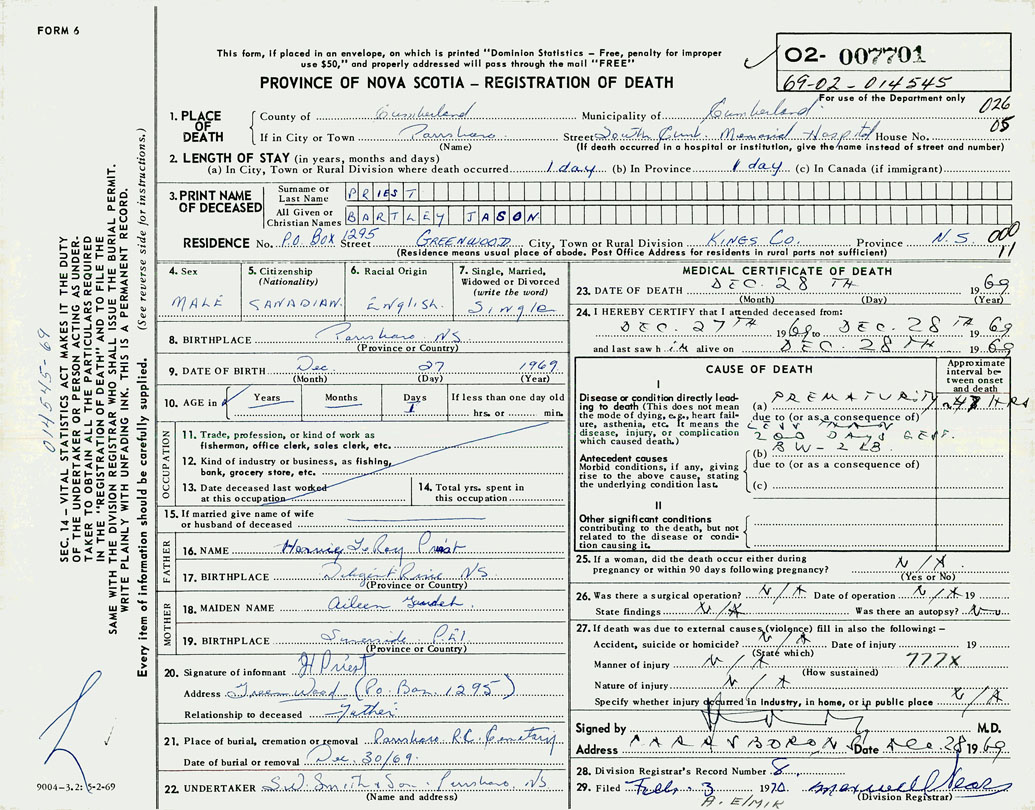 FORM 6
This form, if placed in an envelope, on which is printed "Dominion Statistics – Free, penalty for improper
use $50," and properly addressed will pass through the mail "FREE"
PROVINCE OF NOVA SCOTIA – REGISTRATION OF DEATH
02- 007701
69-02-014545
For use of the Department only
026
05
1. PLACE OF DEATH
County of Cumberland Municipality of Cumberland
If in City or Town Parrsboro Street South Cumb. Memorial Hospital House No.
(Name) (If death occurred in a hospital or institution, give the name instead of street and number)
2. LENGTH OF STAY (in years, months and days)
(a) In City, Town or Rural Division where death occurred 1 day (b) In Province 1 day (c) In Canada (if immigrant)
3. PRINT NAME OF DECEASED
Surname or Last Name PRIEST
All Given or Christian Names BARTLEY JASON
RESIDENCE No. P.O. Box 1295 Street GREENWOOD City, Town or Rural Division KINGS CO. Province N.S. 000
11
(Residence means usual place of abode. Post Office Address for residents in rural parts not sufficient)
4. Sex
MALE
5. Citizenship (Nationality)
CANADIAN.
6. Racial Origin
ENGLISH.
7. Single, Married, Widowed or Divorced (write the word)
Single
8. BIRTHPLACE Parrsboro NS
(Province or Country)
9. DATE OF BIRTH Dec. 27 1969
(Month) (Day) (Year)
10. AGE in Years Months Days If less than one day old
1 hrs. or min.
OCCUPATION
11. Trade, profession, or kind of work as
fisherman, office clerk, sales clerk, etc.
12. Kind of industry or business, as fishing,
bank, grocery store, etc.
13. Date deceased last worked
at this occupation
14. Total yrs. spent in
this occupation
15. If married give name of wife
or husband of deceased
FATHER
16. NAME LeRoy Priest
17. BIRTHPLACE NS.
(Province or Country)
MOTHER
18. MAIDEN NAME Aileen
19. BIRTHPLACE PEI
(Province or Country)
20. Signature of informant H Priest
Address Greenwood (P.O. Box 1295)
Relationship to deceased Father
21. Place of burial, cremation or removal Parrsboro R.C. Cemetary
Date of burial or removal Dec. 30/69.
22. UNDERTAKER S.W. Smith & Son Parrsboro, NS
(Name and address)
MEDICAL CERTIFICATE OF DEATH
23. DATE OF DEATH DEC. 28TH 1969
(Month) (Day) (Year)
24. I HEREBY CERTIFY that I attended deceased from:
DEC. 27TH 1969 to DEC. 28TH 1969
and last saw him alive on DEC. 28TH 1969
CAUSE OF DEATH
Approximate interval between onset and death
I
Disease or condition directly leading to death (This does not mean the mode of dying, e.g., heart failure, asthenia, etc. It means the disease, injury, or complication which caused death.)
(a) PREMATURITY HRS
due to (or as a consequence of)
LESS THAN
200 DAYS GEST.
(b) BW - 2 LB.
due to (or as a consequence of)
(c)
Antecedent causes
Morbid conditions, if any, giving rise to the above cause, stating the underlying condition last.
II
Other significant conditions
contributing to the death, but not related to the disease or condition causing it.
25. If a woman, did the death occur either during
pregnancy or within 90 days following pregnancy? N/A
(Yes or No)
26. Was there a surgical operation? N/A Date of operation N/A 19
State findings N/A Was there an autopsy? No
27. If death was due to external causes (violence) fill in also the following: –
Accident, suicide or homicide? N/A Date of injury 19
(State which)
Manner of injury N/A 777X
(How sustained)
Nature of injury N/A
Specify whether injury occurred in Industry, in home, or in public place N/A
Signed by M.D.
Address PARRSBORO NS Date Dec. 28 1969
28. Division Registrar's Record Number 8
29. Filed Feb. 3 1970
(Division Registrar)
SEC. 14 – VITAL STATISTICS ACT MAKES IT THE DUTY
OF THE UNDERTAKER OR PERSON ACTING AS UNDER-
TAKER TO OBTAIN ALL THE PARTICULARS REQUIRED
IN THE "REGISTRATION OF DEATH" AND TO FILE THE
SAME WITH THE DIVISION REGISTRAR WHO SHALL ISSUE THE BURIAL PERMIT.
WRITE PLAINLY WITH UNFADING INK. THIS IS A PERMANENT RECORD.
Every item of information should be carefully supplied. (See reverse side for instructions.)
014545-69
9004-3.2: 5-2-69